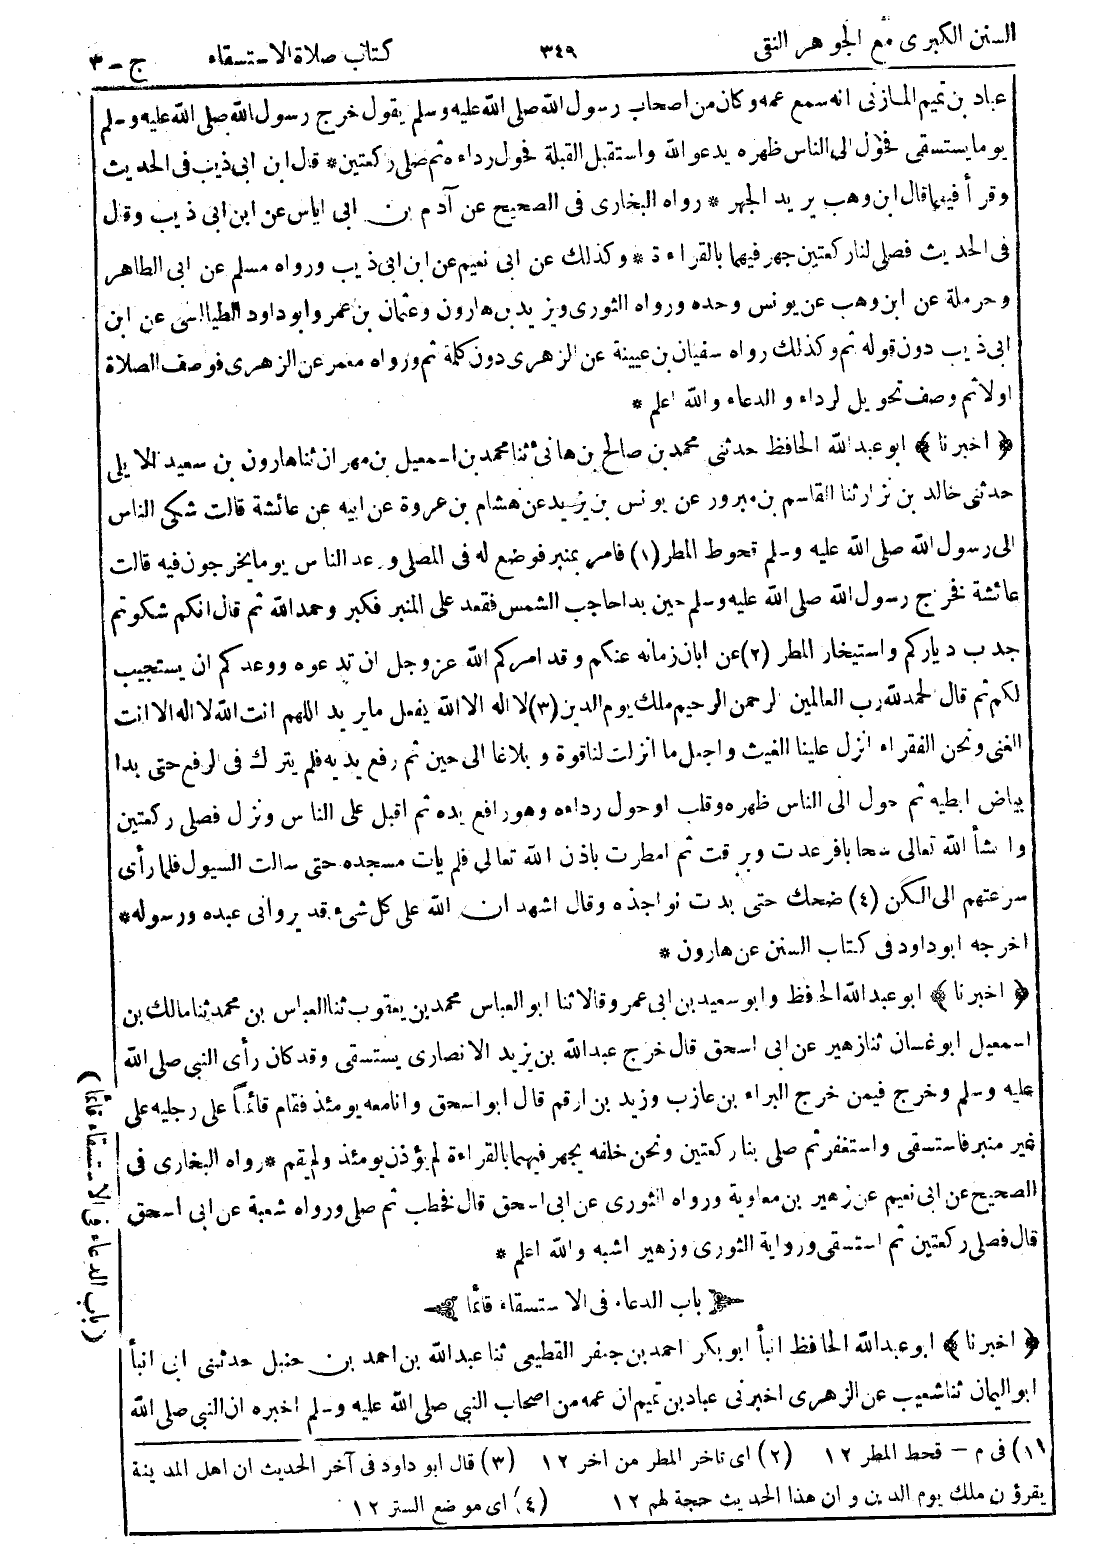 السنن الكبرى مع الجوهر النقى ٣٤٩ كتاب صلاة الاستسقاء ج - ٣
عباد بن تميم المازنى انه سمع عمه وكان من اصحاب رسول الله صلى الله عليه وسلم يقول خرج رسول الله صلى الله عليه وسلم
يوما يستسقى فحول الى الناس ظهره يدعو الله واستقبل القبلة فحول رداءه ثم صلى ركعتين * قال ابن ابى ذيب فى الحديث
وقرأ فيهما قال ابن وهب يريد الجهر * رواه البخارى فى الصحيح عن آدم بن ابى اياس عن ابن ابى ذيب وقال
فى الحديث فصلى لنا ركعتين جهر فيهما بالقراءة * وكذلك عن ابى نعيم عن ابن ابى ذيب ورواه مسلم عن ابى الطاهر
وحرملة عن ابن وهب عن يونس وحده ورواه الثورى ويزيد بن هارون وعثمان بن عمر وابوداود الطيالسى عن ابن
ابى ذيب دون قوله ثم وكذلك رواه سفيان بن عيينة عن الزهرى دون كلمة ثم ورواه معمر عن الزهرى فوصف الصلاة
اولا ثم وصف تحويل لرداء والدعاء والله اعلم *
﴿ اخبرنا ﴾ ابو عبد الله الحافظ حدثنى محمد بن صالح بن هانى ثنا محمد بن اسمعيل بن مهران ثنا هارون بن سعيد الايلى
حدثنى خالد بن نزار ثنا القاسم بن مبرور عن يونس بن يزيد عن هشام بن عروة عن ابيه عن عائشة قالت شكى الناس
الى رسول الله صلى الله عليه وسلم قحوط المطر (١) فامر بمنبر فوضع له فى المصلى وعد الناس يوما يخرجون فيه قالت
عائشة فخرج رسول الله صلى الله عليه وسلم حين بدا حاجب الشمس فقعد على المنبر فكبر وحمد الله ثم قال انكم شكوتم
جدب دياركم واستيخار المطر (٢) عن ابان زمانه عنكم وقد امركم الله عز وجل ان تدعوه ووعدكم ان يستجيب
لكم ثم قال لحمد لله رب العالمين لرحمن الرحيم ملك يوم الدين (٣) لا اله الا الله يفعل ما يريد اللهم انت الله لا اله الا انت
الغنى ونحن الفقراء انزل علينا الغيث واجعل ما انزلت لنا قوة وبلاغا الى حين ثم رفع يديه فلم يترك فى الرفع حتى بدا
بياض ابطيه ثم حول الى الناس ظهره وقلب او حول رداءه وهو رافع يده ثم اقبل على الناس ونزل فصلى ركعتين
وانشأ الله تعالى سحابا فرعدت وبرقت ثم امطرت باذن الله تعالى فلم يات مسجده حتى سالت السيول فلما رأى
سرعتهم الى الكن (٤) ضحك حتى بدت نواجذه وقال اشهد ان الله على كل شىء قدير وانى عبده ورسوله *
اخرجه ابوداود فى كتاب السنن عن هارون *
﴿ اخبرنا ﴾ ابو عبد الله الحافظ وابو سعيد بن ابى عمرو قالا ثنا ابو العباس محمد بن يعقوب ثنا العباس بن محمد ثنا مالك بن
اسمعيل ابو غسان ثنا زهير عن ابى اسحق قال خرج عبد الله بن يزيد الانصارى يستسقى وقد كان رأى النبى صلى الله
عليه وسلم وخرج فيمن خرج البراء بن عازب وزيد بن ارقم قال ابو اسحق وانا معه يومئذ فقام قائماً على رجليه على
غير منبر فاستسقى واستغفر ثم صلى بنا ركعتين ونحن خلفه يجهر فيهما بالقراءة لم يؤذن يومئذ ولم يقم * رواه البخارى فى
الصحيح عن ابى نعيم عن زهير بن معاوية ورواه الثورى عن ابى اسحق قال فخطب ثم صلى ورواه شعبة عن ابى اسحق
قال فصلى ركعتين ثم استسقى ورواية الثورى وزهير اشبه والله اعلم *
باب الدعاء فى الاستسقاء قائما
﴿ اخبرنا ﴾ ابو عبد الله الحافظ انبأ ابو بكر احمد بن جعفر القطيعى ثنا عبد الله بن احمد بن حنبل حدثنى ابى انبأ
ابو اليمان ثنا شعيب عن الزهرى اخبرنى عباد بن تميم ان عمه من اصحاب النبى صلى الله عليه وسلم اخبره ان النبى صلى الله
(١) فى م - قحط المطر ١٢ (٢) اى تاخر المطر من اخر ١٢ (٣) قال ابو داود فى آخر الحديث ان اهل المدينة
يقرؤن ملك يوم الدين وان هذا الحديث حجة لهم ١٢ (٤) اى موضع الستر ١٢
(باب الدعاء فى الاستسقاء قائما)